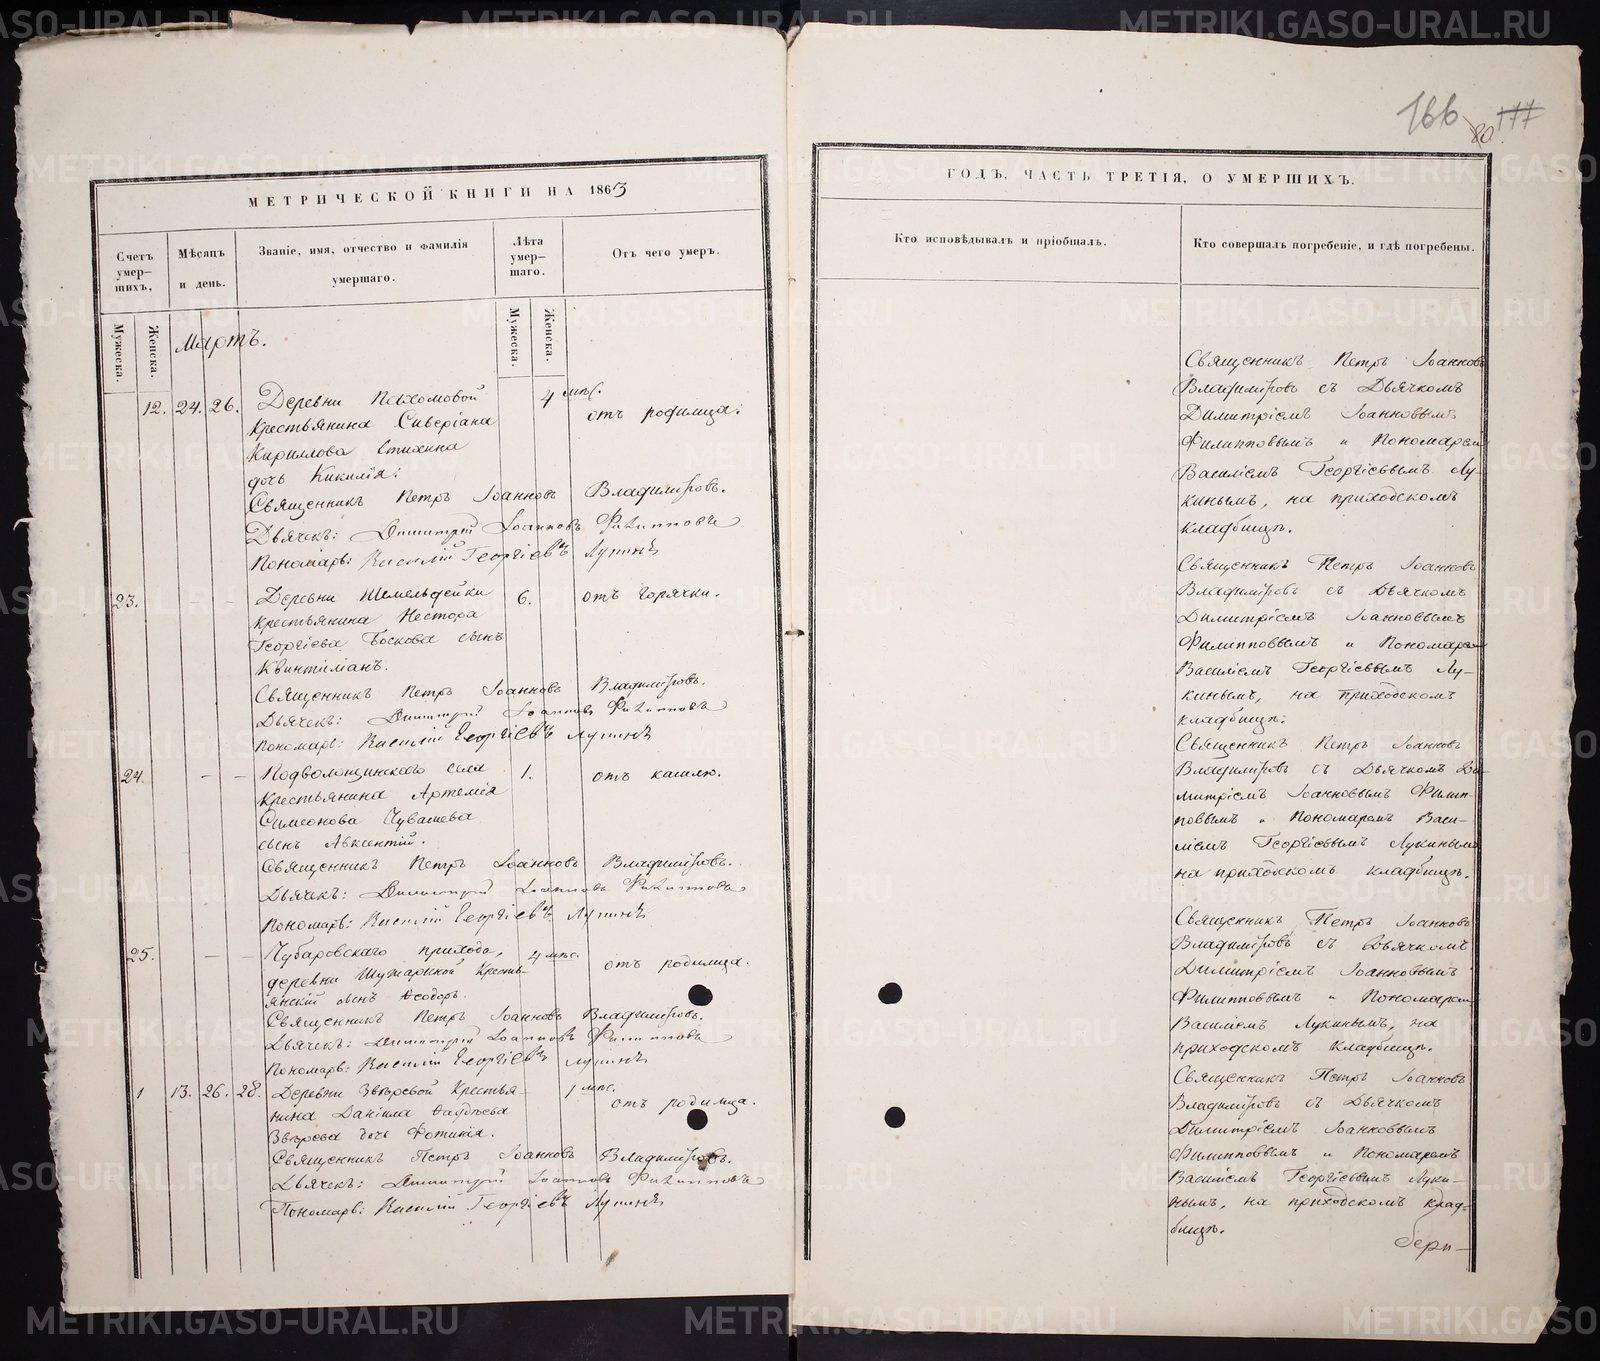 166 80. 177
МЕТРИЧЕСКОЙ КНИГИ НА 1863
Счетъ умер-шихъ,
Мѣсяцъ и день.
Званіе, имя, отчество и фамилія умершаго.
Лѣта умер-шаго.
Отъ чего умеръ.
Мужеска.
Женска.
Мужеска.
Женска.
Мартъ.
12. 24. 26. Деревни Пахомовой 4 мѣс. отъ родимца:
Крестьянина Сиверіана
Кириллова Стихина
дочь Кикилія:
Священникъ Петръ Іоанновъ Владиміровъ.
Дьячекъ: Димитрій Іоанновъ Филипповъ
Пономарь: Василій Георгіевъ Лукинъ
23. – – Деревни 6. отъ горячки.
крестьянина Нестора
Георгіева Боскова сынъ
Квинтиліанъ.
Священникъ Петръ Іоанновъ Владиміровъ.
Дьячекъ: Димитрій Іоанновъ Филипповъ
Пономарь: Василій Георгіевъ Лукинъ
24. – – Подволошинскаго села 1. отъ кашлю.
Крестьянина Артемія
Симеонова Чувашева
сынъ Авксентій.
Священникъ Петръ Іоанновъ Владиміровъ.
Дьячекъ: Димитрій Іоанновъ Филипповъ
Пономарь: Василій Георгіевъ Лукинъ
25. – – Чубаровскаго прихода, 4 мѣс. отъ родимца.
деревни Кресть-
янскій сынъ Ѳеодоръ.
Священникъ Петръ Іоанновъ Владиміровъ.
Дьячекъ: Димитрій Іоанновъ Филипповъ
Пономарь: Василій Георгіевъ Лукинъ
1 13. 26. 28. Деревни Звѣревой Крестья- 1 мѣс. отъ родимца.
нина Даніила Ѳаддѣева
Звѣрева дочь Фотинія.
Священникъ Петръ Іоанновъ Владиміровъ.
Дьячекъ: Димитрій Іоанновъ Филипповъ
Пономарь: Василій Георгіевъ Лукинъ
ГОДЪ, ЧАСТЬ ТРЕТІЯ, О УМЕРШИХЪ.
Кто исповѣдывалъ и пріобщалъ.
Кто совершалъ погребеніе, и гдѣ погребены.
Священникъ Петръ Іоанновъ
Владиміровъ съ Дьячкомъ
Димитріемъ Іоанновымъ
Филипповымъ и Пономаремъ
Василіемъ Георгіевымъ Лу-
кинымъ, на приходскомъ
кладбищѣ.
Священникъ Петръ Іоанновъ
Владиміровъ съ Дьячкомъ
Димитріемъ Іоанновымъ
Филипповымъ и Пономаремъ
Василіемъ Георгіевымъ Лу-
кинымъ, на приходскомъ
кладбищѣ.
Священникъ Петръ Іоанновъ
Владиміровъ съ Дьячкомъ Ди-
митріемъ Іоанновымъ Филип-
повымъ и Пономаремъ Васи-
ліемъ Георгіевымъ Лукинымъ
на приходскомъ кладбищѣ.
Священникъ Петръ Іоанновъ
Владиміровъ съ Дьячкомъ
Димитріемъ Іоанновымъ
Филипповымъ и Пономаремъ
Василіемъ Лукинымъ, на
приходскомъ кладбищѣ.
Священникъ Петръ Іоанновъ
Владиміровъ съ Дьячкомъ
Димитріемъ Іоанновымъ
Филипповымъ и Пономаремъ
Василіемъ Георгіевымъ Луки-
нымъ, на приходскомъ клад-
бищѣ.
METRIKI.GASO-URAL.RU